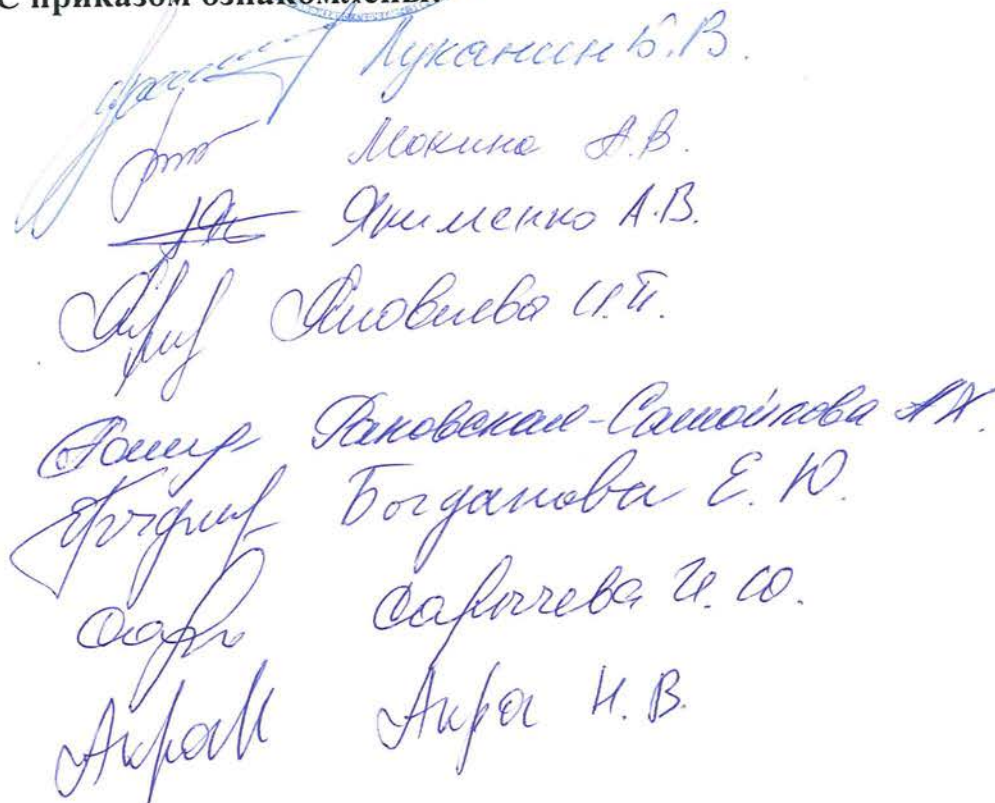 С приказом ознакомлены:
Луканин Б.В.
Мокина А.В.
Якименко А.В.
Яковлева И.П.
Раковская-Самойлова А.Х.
Богданова Е.Ю.
Сарычева И.Ю.
Акра Н.В.